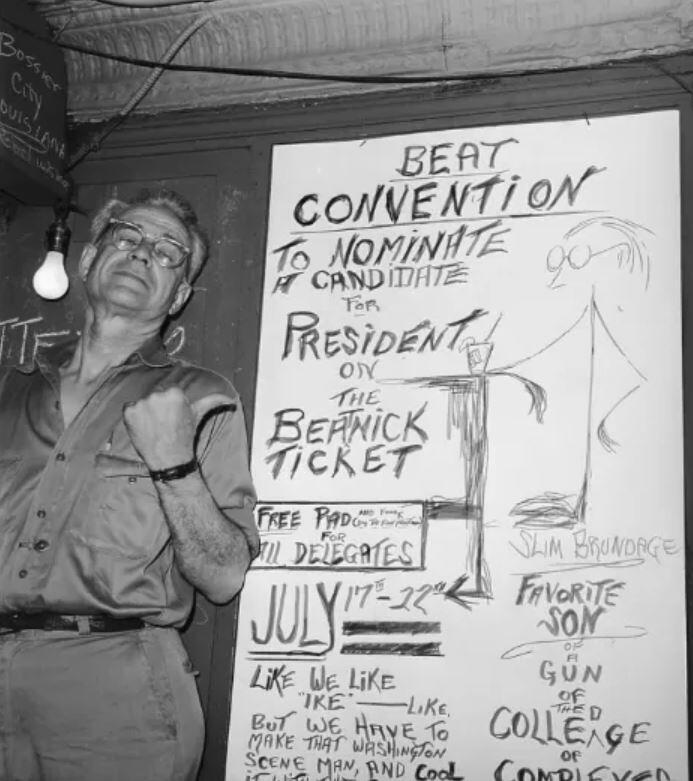 BOSSIER
City
LOUISIANA
BEAT
CONVENTION
TO NOMINATE
A CANDIDATE
FOR
PRESIDENT
ON
THE
BEATNICK
TICKET
FREE PAD
FOR
All DELEGATES
JULY 17TH-22TH
LIKE WE LIKE
"IKE" — LIKE.
BUT WE HAVE TO
MAKE THAT WASHINGTON
SCENE MAN, AND COOL
SLIM BRUNDAGE
FAVORITE
SON
OF
A
GUN
OF
THE
COLLEDGE
OF
COMPLEXED